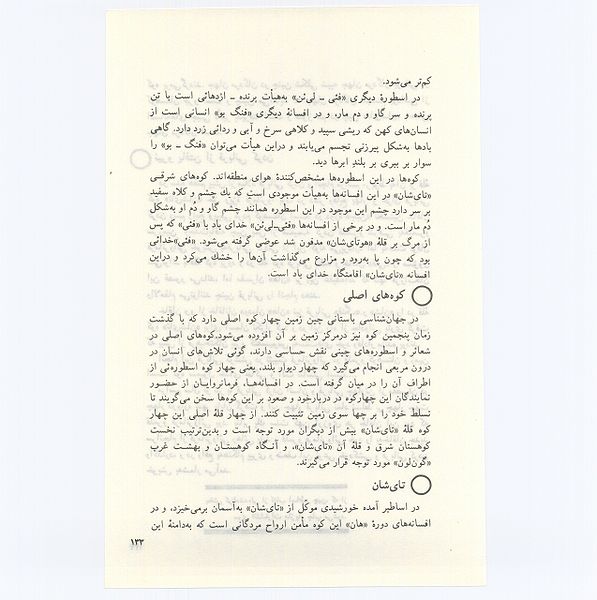 کم‌تر می‌شود.
در اسطورهٔ دیگری «فئی ـ لی‌ئن» به‌هیأت پرنده ـ اژدهائی است با تن
پرنده و سر گاو و دم مار، و در افسانهٔ دیگری «فنگ یو» انسانی است از
انسان‌های کهن که ریشی سپید و کلاهی سرخ و آبی و ردائی زرد دارد. گاهی
بادها به‌شکل پیرزنی تجسم می‌یابند و دراین هیأت می‌توان «فنگ ـ یو» را
سوار بر ببری بر بلندِ ابرها دید.
کوه‌ها در این اسطوره‌ها مشخص‌کنندهٔ هوای منطقه‌اند. کوه‌های شرقی
«تای‌شان» در این افسانه‌ها به‌هیأت موجودی است که یك چشم و کلاه سفید
بر سر دارد چشم این موجود در این اسطوره همانند چشم گاو و دُم او به‌شکل
دُم مار است. و در برخی از افسانه‌ها «فئی‌ـ‌لی‌ئن» خدای باد با «فئی» که پس
از مرگ بر قلهٔ «هوتای‌شان» مدفون شد عوضی گرفته می‌شود. «فئی»خدائی
بود که چون پا به‌رود و مزارع می‌گذاشت آن‌ها را خشك می‌کرد و دراین
افسانه «تای‌شان» اقامتگاه خدای باد است.
کوه‌های اصلی
در جهان‌شناسی باستانی چین زمین چهار کوه اصلی دارد که با گذشت
زمان پنجمین کوه نیز درمرکز زمین بر آن افزوده می‌شود.کوه‌های اصلی در
شعائر و اسطوره‌های چینی نقش حساسی دارند، گوئی تلاش‌های انسان در
درون مربعی انجام می‌گیرد که چهار دیوار بلند، یعنی چهار کوه اسطوره‌ئی از
اطراف آن را در میان گرفته است. در افسانه‌ها، فرمانروایان از حضور
نمایندگان این چهارکوه در دربارخود و صعود بر این کوه‌ها سخن می‌گویند تا
تسلط خود را بر چها سوی زمین تثبیت کنند. از چهار قلهٔ اصلی این چهار
کوه قلهٔ «تای‌شان» بیش از دیگران مورد توجه است و بدین‌ترتیب نخست
کوهستان شرق و قلهٔ آن «تای‌شان»، و آنگاه کوهستان و بهشت غرب
«گون‌لون» مورد توجه قرار می‌گیرند.
تای‌شان
در اساطیر آمده خورشیدی موکّل از «تای‌شان» به‌آسمان برمی‌خیزد، و در
افسانه‌های دورهٔ «هان» این کوه مأمن ارواح مردگانی است که به‌دامنهٔ این
۱۳۳